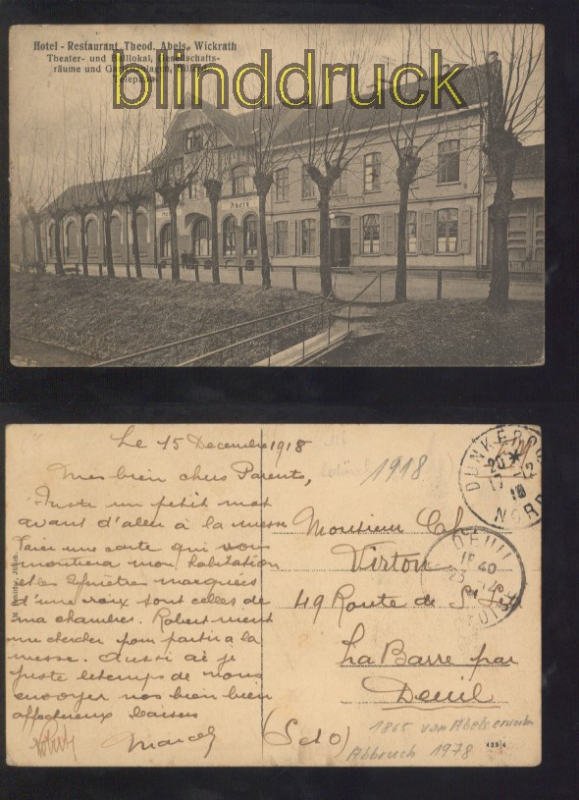 Hotel - Restaurant Theod. Abels, Wickrath
Theater- und Balllokal, Gesellschafts-
räume und
blinddruck
Abels
Le 15 Decembre 1918
Mes bien chers Parents,
Juste un petit mot
avant d'aller à la messe
Voici une carte qui vous
montrera mon habitation
et les fenêtres marquées
d'une croix sont celles de
ma chambre. Robert vient
me chercher pour partir a la
messe. Aussi ai je
juste le temps de vous
envoyer nos bien bien
affectueux baisers
Marcel
1918
Monsieur Ch.
Virton
49 Route de St
La Barre par
Deuil
(S et O)
DUNKERQUE
20 *
17 12
18
NORD
DEUIL
40
1865 von Abels
Abbruch 1978